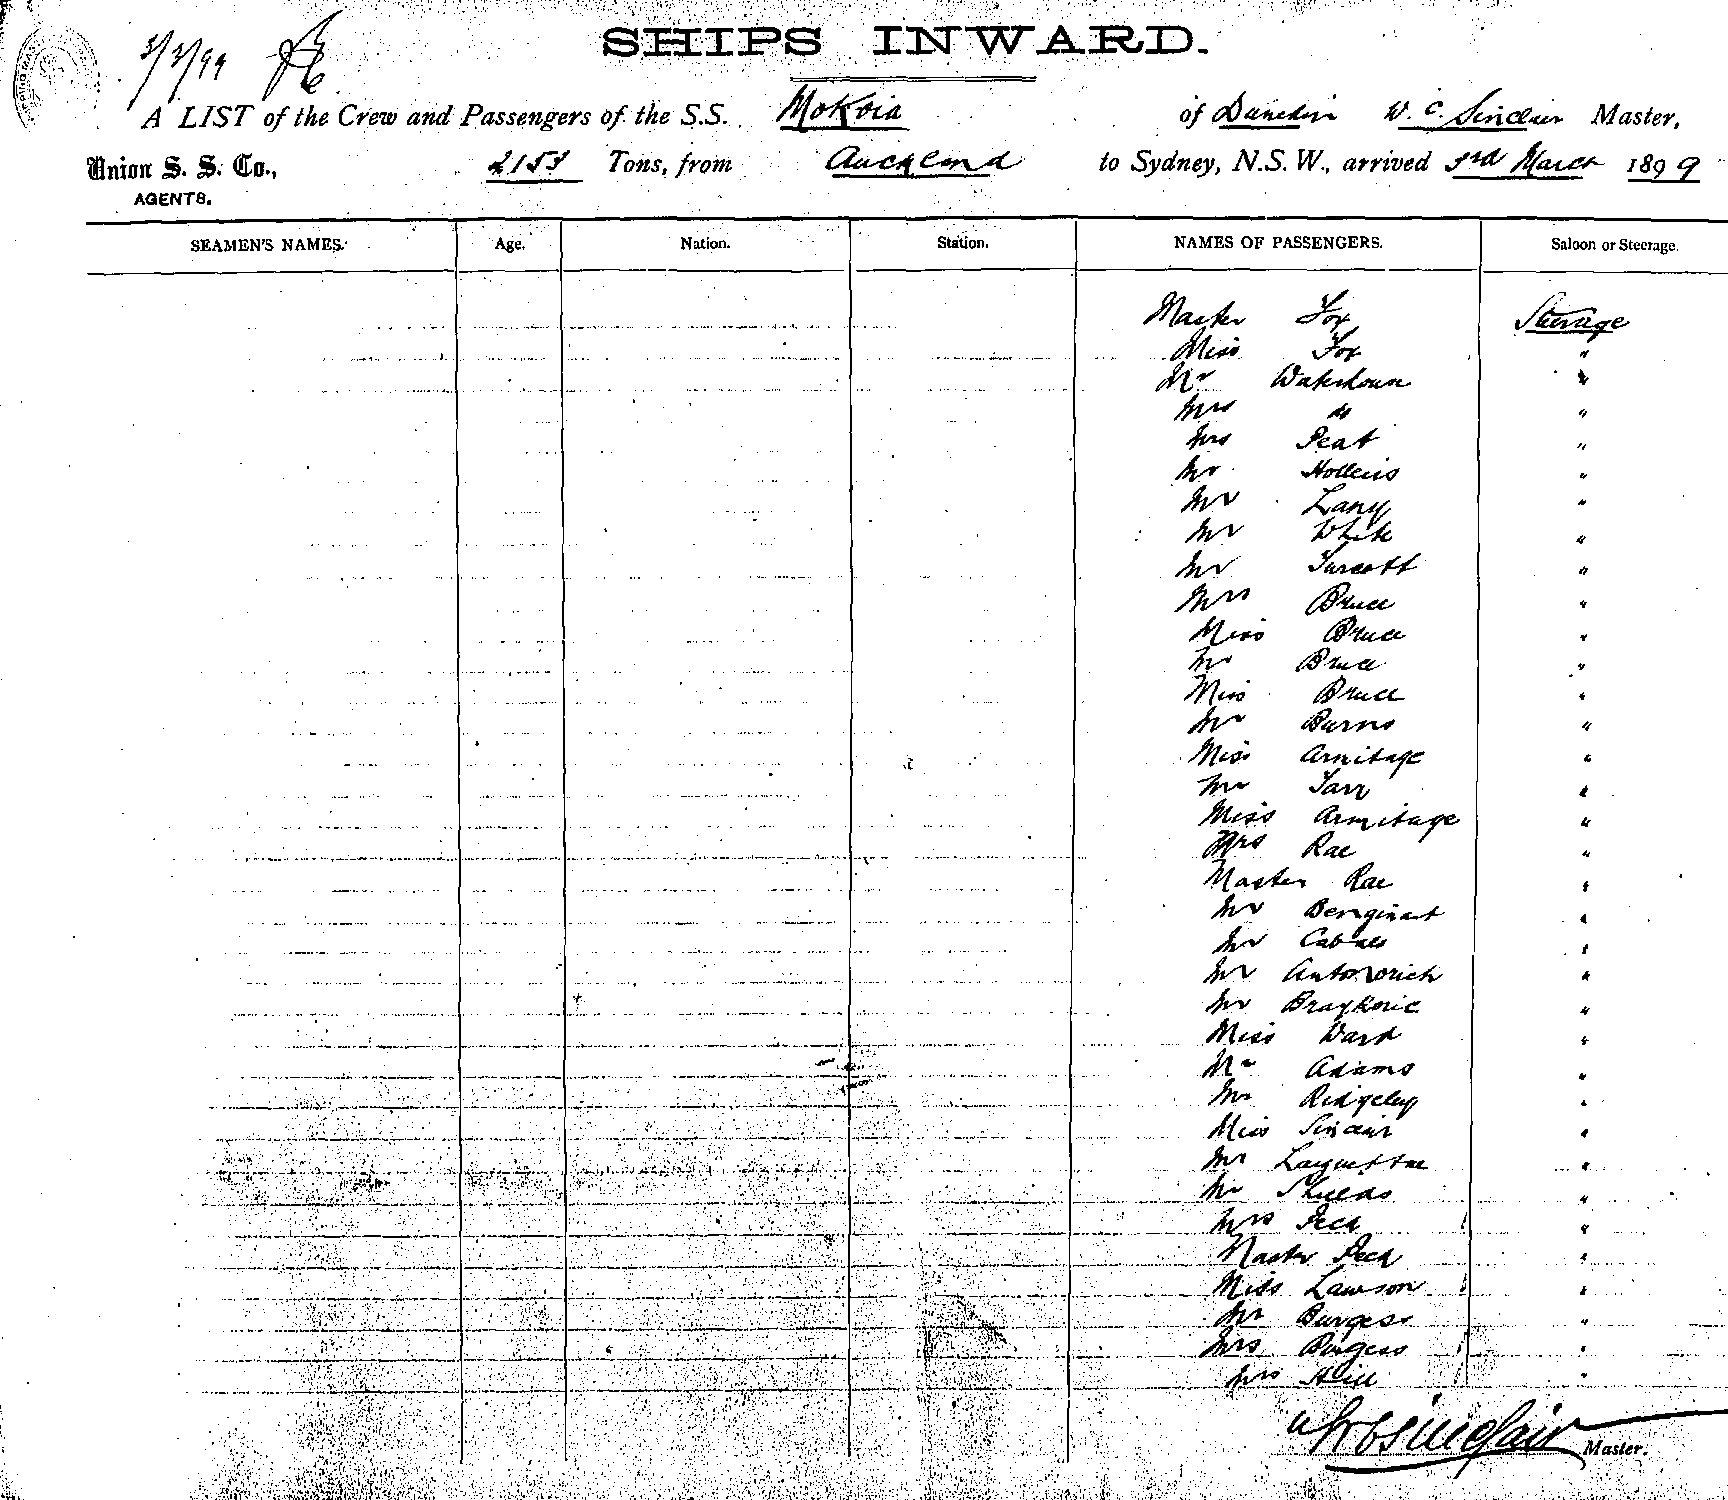 3/3/99
SHIPS INWARD.
A LIST of the Crew and Passengers of the S.S. Mokoia of Dunedin W. C. Sinclair Master,
Union S. S. Co., 2153 Tons, from Auckland to Sydney, N.S.W., arrived 3rd March 1899
AGENTS.
SEAMEN'S NAMES. Age. Nation. Station. NAMES OF PASSENGERS. Saloon or Steerage.
Master Fox Steerage
Miss Fox "
Mr Waterhouse "
Mrs " "
Mrs Peat "
Mr Hollis "
Mr Lang "
Mr White "
Mr Turcott "
Mrs Bruce "
Miss Bruce "
Mr Bruce "
Miss Bruce "
Mr Burns "
Miss Armitage "
Mr Tarr "
Miss Armitage "
Mrs Rae "
Master Rae "
Mr "
Mr "
Mr Antonovich "
Mr "
Miss Ward "
Mr Adams "
Mr Ridgeley "
Miss Sinclair "
Mr "
Mr Shields "
Mrs Peck "
Master Peck "
Miss Lawson "
Mr Burgess "
Mrs Burgess "
Mrs Hill "
W C Sinclair Master.